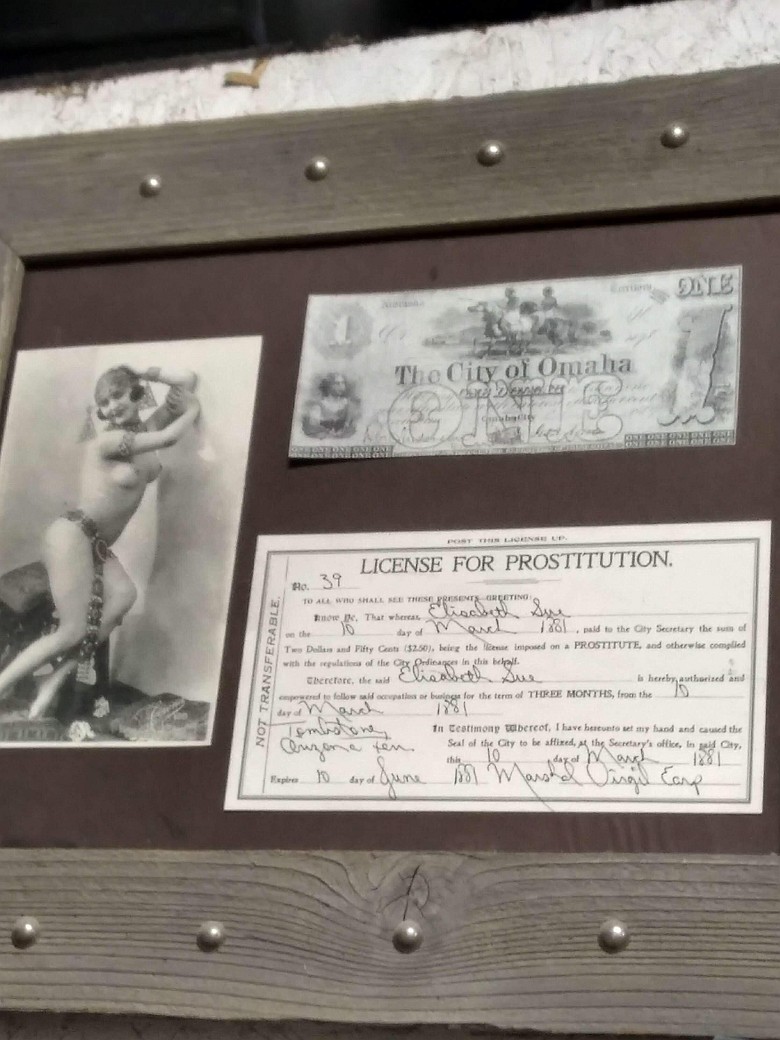 Nebraska
ONE
1
The City of Omaha
ONE
Omaha City
1
ONE ONE ONE ONE
ONE ONE ONE ONE ONE
POST THIS LICENSE UP.
LICENSE FOR PROSTITUTION.
No. 39
TO ALL WHO SHALL SEE THESE PRESENTS GREETING:
Know Ye, That whereas Elisabeth Sue
on the 10 day of March 1881, paid to the City Secretary the sum of
Two Dollars and Fifty Cents ($2.50), being the license imposed on a PROSTITUTE, and otherwise complied
with the regulations of the City Ordinances in this behalf.
Therefore, the said Elisabeth Sue is hereby authorized and
empowered to follow said occupation or business for the term of THREE MONTHS, from the 10
day of March 1881
Tombstone,
Arizona Terr.
In Testimony Whereof, I have hereunto set my hand and caused the
Seal of the City to be affixed, at the Secretary's office, in said City,
this 10 day of March 1881
Expires 10 day of June 1881 Marshal Virgil Earp
NOT TRANSFERABLE.